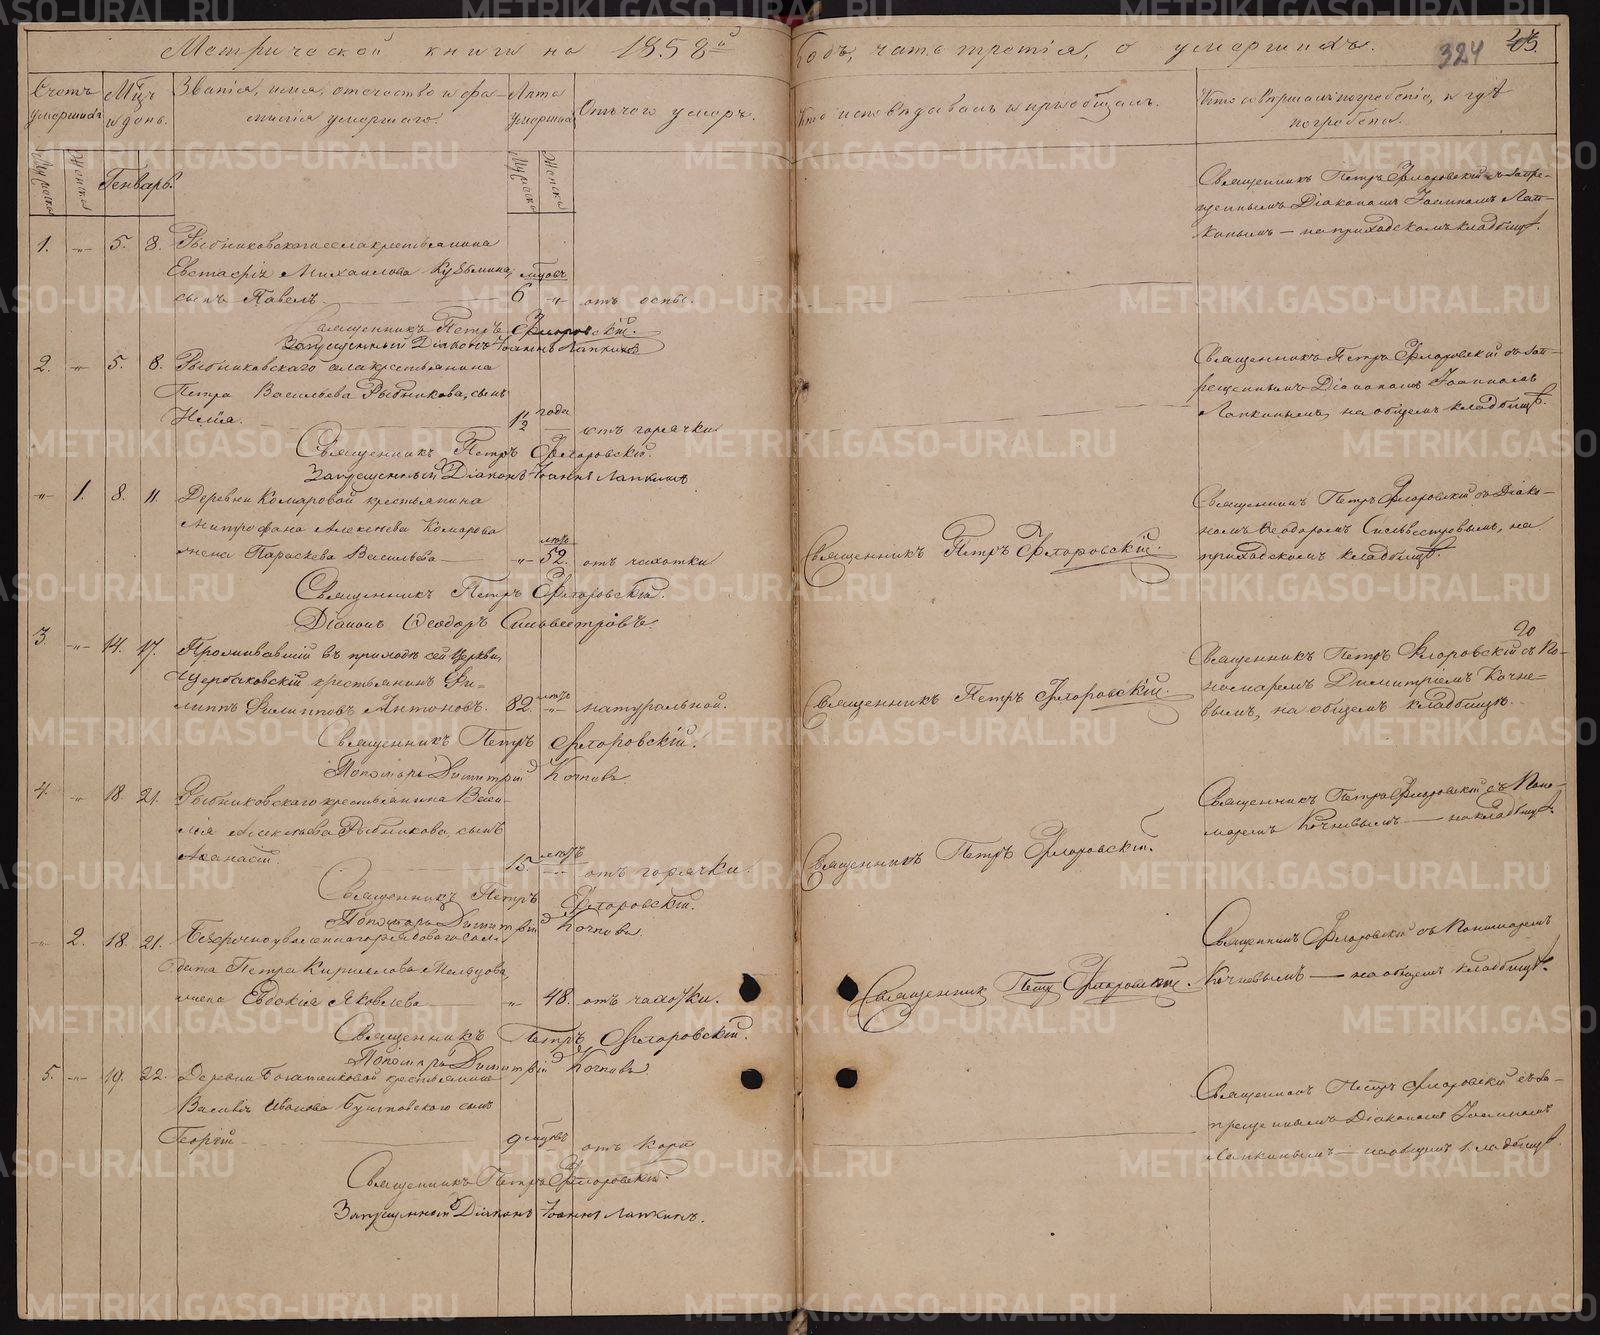 Метрической книги на 1858й
Годъ, часть третія, о умершихъ.
324
Счетъ умершихъ
Мцъ и день.
Званіе, имя, отечество и фамилія умершаго.
Лета умершаго
Отъ чего умеръ.
Кто исповѣдывалъ и пріобщалъ.
Кто совершалъ погребеніе, и гдѣ погребены.
Мужска
Женска
Генварь.
Мужска
Женска
1. -"- 5. 8. Рыбниковскаго села крестьянина
Евстафія Михаилова Кузьмина, мцовъ
сынъ Павелъ. 6 -"- отъ оспы.
Священникъ Петръ Флоровскій.
Запрещенный Діаконъ Іоаннъ Лапкинъ
Священникъ Петръ Флоровскій съ запре-
щеннымъ Діакономъ Іоанномъ Лап-
кинымъ — на приходскомъ кладбищѣ.
2. -"- 5. 8. Рыбниковскаго села крестьянина
Петра Васильева Рыбникова, сынъ
Илія. 1/2 года отъ горячки
Священникъ Петръ Флоровскій.
Запрещенный Діаконъ Іоаннъ Лапкинъ
Священникъ Петръ Флоровскій съ зап-
рещеннымъ Діакономъ Іоанномъ
Лапкинымъ, на общемъ кладбищѣ.
-"- 1. 8. 11. Деревни Комаровой крестьянина
Митрофана Алексѣева Комарова
жена Параскева Васильева -"- лѣтъ 52. отъ чахотки
Священникъ Петръ Флоровскій.
Діаконъ Ѳеодоръ Сильвестровъ.
Священникъ Петръ Флоровскій.
Священникъ Петръ Флоровскій съ Діако-
номъ Ѳеодоромъ Сильвестровымъ, на
приходскомъ кладбищѣ.
3. -"- 14. 17. Проживавшій въ приходѣ сей Церкви,
Щербаковскій крестьянинъ Фи-
липпъ Филипповъ Антоновъ. 82. лѣтъ -"- натуральной.
Священникъ Петръ Флоровскій.
Пономарь Димитрій Кочневъ.
Священникъ Петръ Флоровскій.
Священникъ Петръ Флоровскій съ По-
номаремъ Димитріемъ Кочне-
вымъ, на общемъ кладбищѣ.
4. -"- 18. 21. Рыбниковскаго крестьянина Васи-
лія Алексѣева Рыбникова, сынъ
Аѳанасій. 15. лѣтъ -"- отъ горячки.
Священникъ Петръ Флоровскій.
Пономарь Димитрій Кочневъ.
Священникъ Петръ Флоровскій.
Священникъ Петръ Флоровскій съ Поно-
маремъ Кочневымъ — на кладбищѣ.
-"- 2. 18. 21. Безсрочноуволеннаго рядоваго сол-
дата Петра Кириллова Мельцова,
жена Евдокія Яковлева -"- 48. отъ чахотки.
Священникъ Петръ Флоровскій.
Пономарь Димитрій Кочневъ.
Священникъ Петръ Флоровскій.
Священникъ Флоровскій съ Пономаремъ
Кочневымъ — на общемъ кладбищѣ.
5. -"- 19. 22. Деревни крестьянина
Василія Иванова сынъ
Георгій 9 мцовъ отъ кори
Священникъ Петръ Флоровскій.
Запрещенный Діаконъ Іоаннъ Лапкинъ.
Священникъ Петръ Флоровскій съ за-
прещеннымъ Діакономъ Іоанномъ
Лапкинымъ — на общемъ кладбищѣ.
METRIKI.GASO-URAL.RU